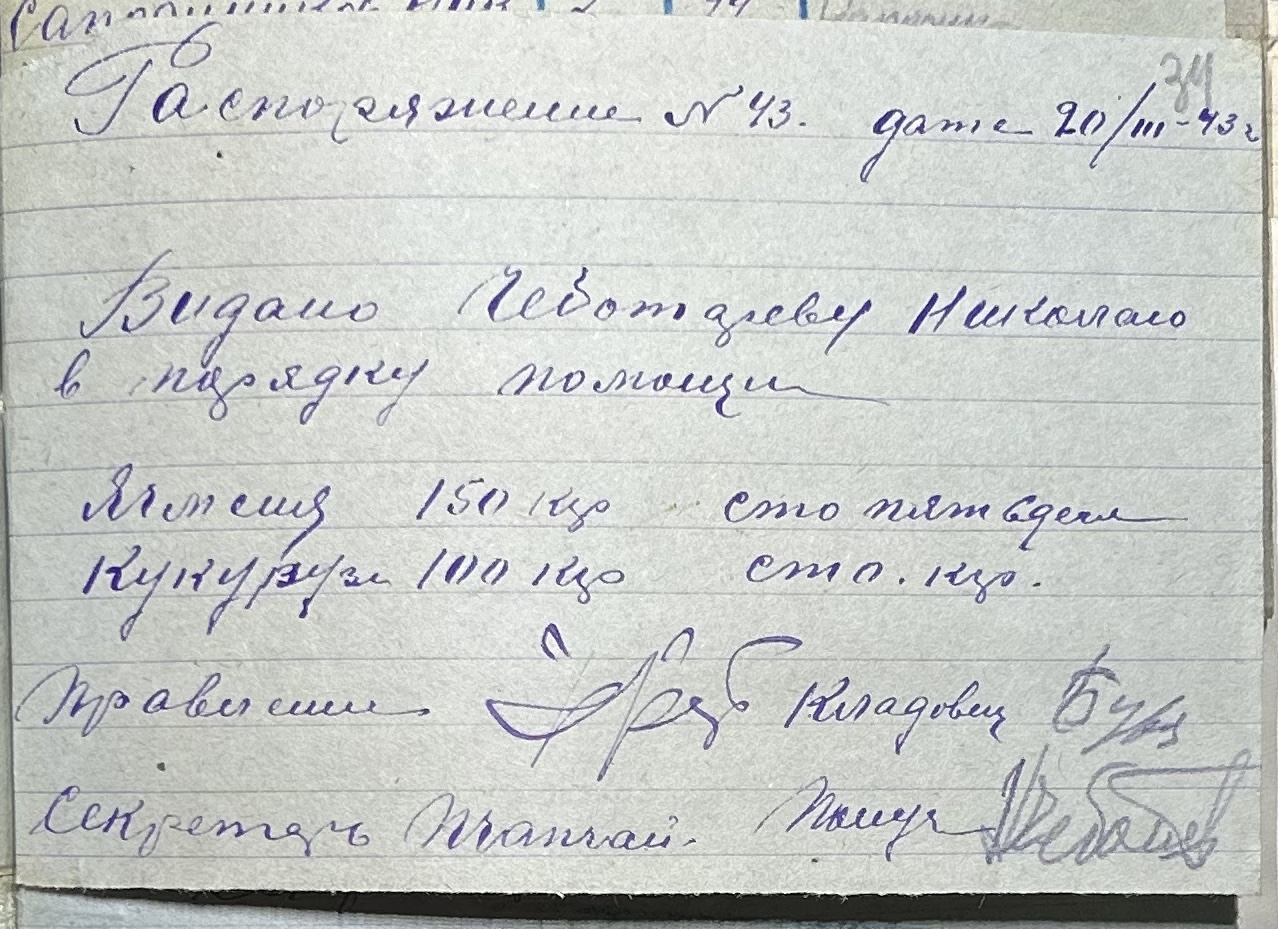 34
Распоряжение № 43. дате 20/III-43 г
Видано Чеботареву Николаю
в порядку помощи
Ячменя 150 кгр сто пятьдеся
Кукурузи 100 кгр сто. кгр.
Правление Кладовщ
Секретарь Получ